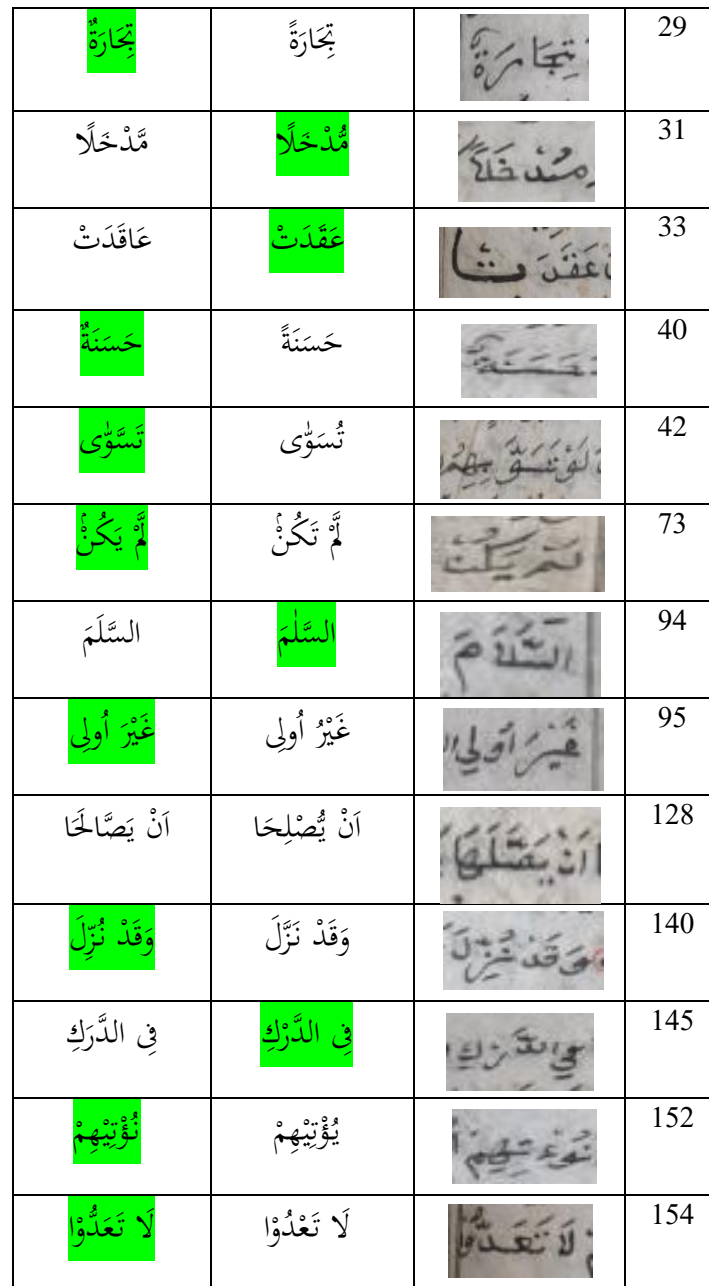 29 تِجَارَةٌ تِجَارَةً تِجَارَةٌ
31 مُدْخَلًا مُّدْخَلًا مَّدْخَلًا
33 عَقَدَتْ عَقَدَتْ عَاقَدَتْ
40 حَسَنَةٌ حَسَنَةً حَسَنَةٌ
42 لَوْ تَسَوَّى بِهِمُ تُسَوّٰى تَسَّوّٰى
73 لَمْ يَكُنْ لَّمْ تَكُنْۢ لَّمْ يَكُنْۢ
94 السَّلَامَ السَّلٰمَ السَّلَمَ
95 غَيْرَ أُولِي غَيْرُ اُولِى غَيْرَ اُولِى
128 اَنْ يَصَّلَحَا اَنْ يُّصْلِحَا اَنْ يَصَّالَحَا
140 وَقَدْ نُزِّلَ وَقَدْ نَزَّلَ وَقَدْ نُزِّلَ
145 فِي الدَّرْكِ فِى الدَّرْكِ فِى الدَّرَكِ
152 نُؤْتِيهِمْ يُؤْتِيْهِمْ نُؤْتِيْهِمْ
154 لَا تَعَدُّوا لَا تَعْدُوْا لَا تَعَدُّوْا